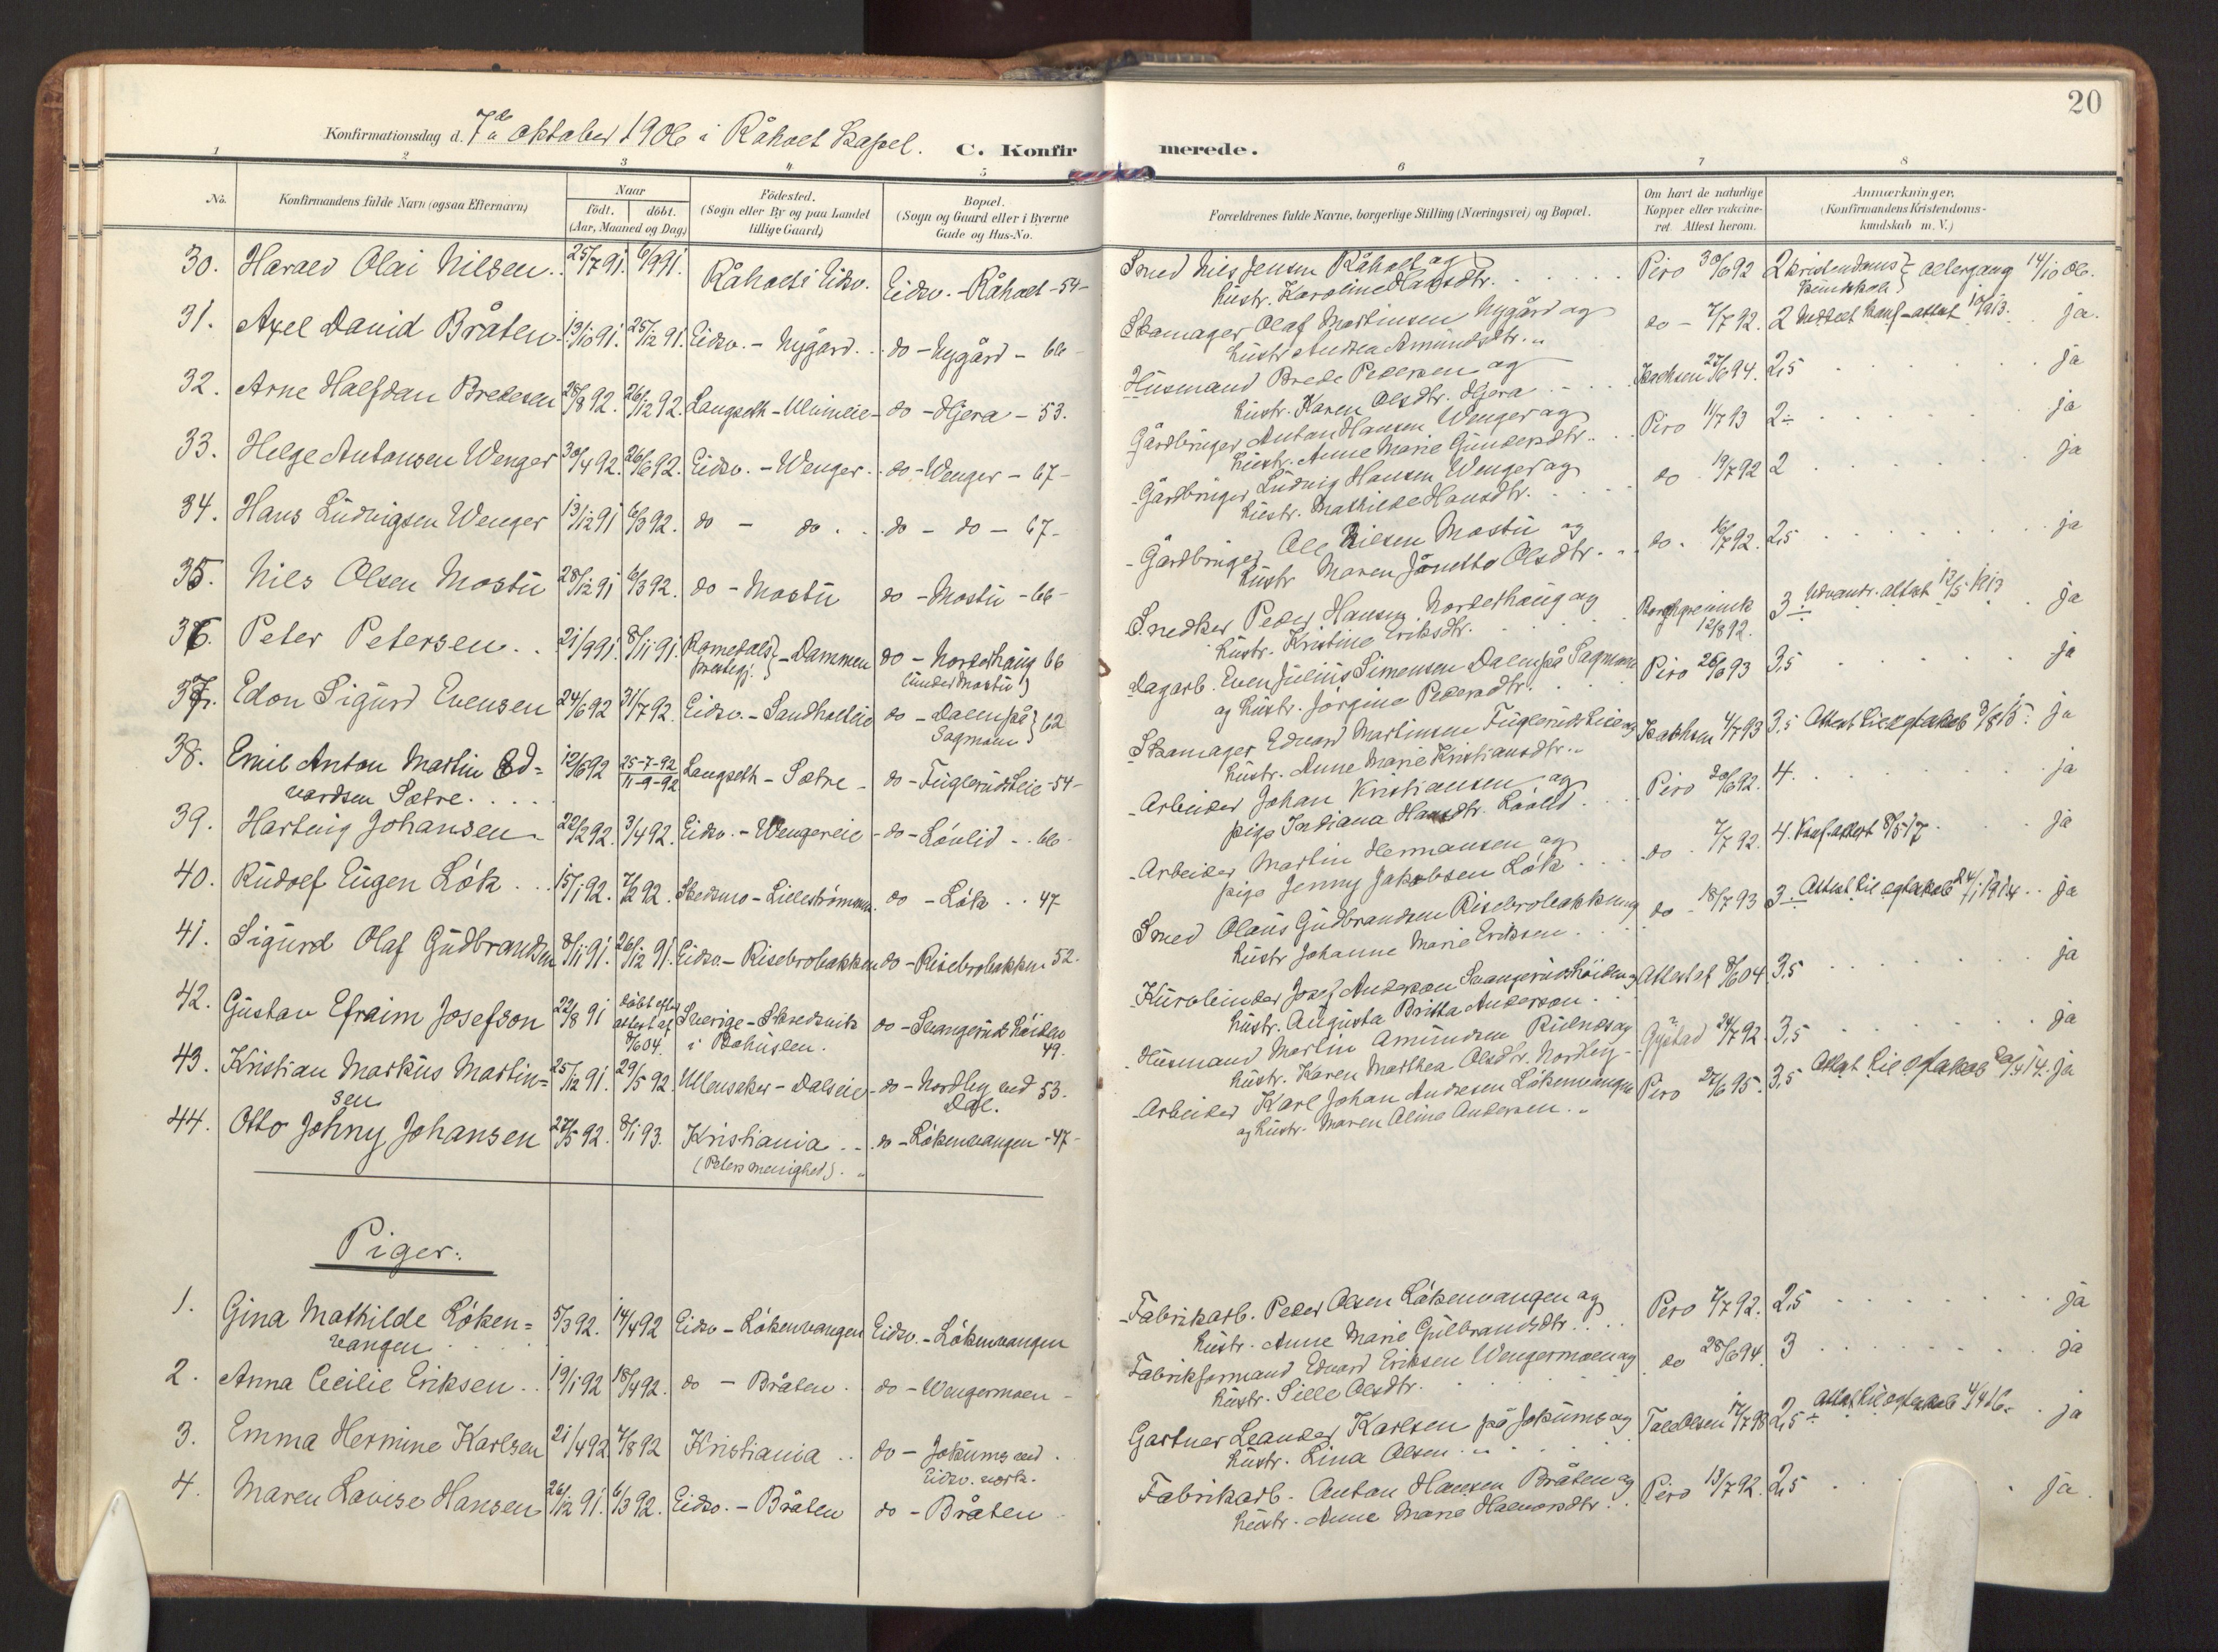 20
Konfirmationsdag d. 7de oktober 1906 i Råholt Kapel. C. Konfirmerede.
1 2 3 4 5 6 7 8
No.
Konfirmandens fulde Navn (ogsaa Efternavn)
Naar
födt. döbt.
(Aar, Maaned og Dag)
Födested.
(Sogn eller By og paa Landet
tillige Gaard)
Bopæl.
(Sogn og Gaard eller i Byerne
Gade og Hus-No.
Forældrenes fulde Navne, borgerlige Stilling (Næringsvei) og Bopæl.
Om havt de naturlige
Kopper eller vakcine-
ret. Attest herom.
Anmærkninger.
(Konfirmandens Kristendoms-
kundskab m. V.)
30. Harald Olai Nilsen. 25/7 91. 6/9 91. Råholt i Eidsv. Eidsv. - Råholt - 54 - Smed Nils Jensen Råholt og Piro 30/6 92 2 Kristendoms- } Altergang 14/10 06.
Hustr. Karoline Hansdtr. kundskab }
31. Axel David Bråten 13/10 91. 25/12 91. Eidsv. - Nygård. do - Nygård - 66 Skomager Olaf Martinsen Nygård og do - 7/7 92. 2 Meddelt Konf-attest ja.
Hustr. Andrea Amundsdtr.
32. Arne Halfdan Bredesen 28/8 92. 26/12 92. Langseth - do - Hjera - 53. Husmand Brede Pedersen og Isachsen 27/6 94. 2,5 ja
Hustr. Karen Olsdtr. Hjera
33. Helge Antonsen Wenger 30/4 92. 26/6 92. Eidsv. - Wenger do - Wenger - 67 - Gårdbruger Anton Hansen Wenger og Piro 11/7 93 2 ÷ ja
Hustr. Anne Marie Gundersdtr.
34. Hans Ludvigsen Wenger 13/12 91 6/3 92. do - do do - do - 67 - Gårdbruger Ludvig Hansen Wenger og do 19/7 92 2 ja
Hustr. Mathilde Hansdtr.
35. Nils Olsen Mostu 28/12 91 6/3 92. do - Mostu do - Mostu - 66 - Gårdbruger Ole Nilsen Mostu og do. 16/7 92. 2,5 ja
Hustr Maren Jónette Olsdtr.
36. Peter Petersen 21/9 91 8/11 91. Romedals } - Dammen do - Norderhaug 66 Snedker Peder Hansen Norderhaug og Borchgrevink 3 ÷ Udvandr. attest 12/5 1913 ja
prestegj. } (under Mostu) Hustr. Kristine Eriksdtr. 12/8 92.
37. Edon Sigurd Evensen 24/6 92 31/7 92. Eidsv. - Sandholteie do - Dalen på } 62 Dagarb. Even Julius Simensen Dalen på Sagmoen Piro 26/6 93 3,5 ja
Sagmoen } og Hustr. Jörgine Pedersdtr.
38. Emil Anton Martin Ed= 12/6 92 25-7-92 Langseth - Sætre - do - Fuglerudseie - 54 - Skomager Edvard Martinsen Fuglerudseie og Isachsen 4/7 93 3,5 Attest til ægteskab 3/8 15. ja
vardsen Sætre 11-9-92 Hustr. Anne Marie Kristiansdtr.
39. Hartvig Johansen 22/2 92. 3/4 92. Eidsv. - Wengereie - do - Lóvlid - 66 - Arbeider Johan Kristiansen og Piro 20/6 92. 4. ja
pige Indiana Hansdtr. Lóvlid
40. Rudolf Eugen Lók 15/1 92. 7/2 92. Skedsmo - Lillestrómmen. do - Lók 47 - Arbeider Martin Hermansen og do. 7/7 92. 4. Konf.attest 8/5 17 ja
pige Jenny Jakobsen Lók
41. Sigurd Olaf Gudbrandsen 8/11 91. 26/12 91. Eidsv. - Risebrobakken do - Risebrobakken 52. Smed Olaus Gudbrandsen Risebrobakken og do - 18/7 93 3 ÷ Attest til ægteskab 24/1 1914 ja
Hustr Johanne Marie Eriksen
42. Gustav Efraim Josefson 22/8 91 döbt efter Sverige - do - 49. Kurvbinder Josef Anderson og Attest af 8/6 04. 3,5 ja
attest af i Bohuslen. Hustr. Augusta Britta Anderson
8/6 04.
43. Kristian Markus Martin= 25/12 91. 29/5 92. Ullensaker - Dalseie - do - Nordby ved 53. Husmand Martin Amundsen og Gystad 24/7 92. 3,5 ja
sen Dal. Hustr. Karen Marthea Olsdtr. Nordby -
44. Otto Johny Johansen 27/5 92. 8/1 93. Kristiania do - Lókenvangen - 47 - Arbeider Karl Johan Andersen Lókenvangen Piro 27/6 95. 3,5 Attest til ægteskab 14. ja
(Peters menighed). og Hustr. Maren Oline Andersen.
Piger:
1. Gina Mathilde Lóken= 5/3 92. 14/4 92 Eidsv - Lókenvangen Eidsv. - Lókenvangen Fabrikarb. Peder Olsen Lókenvangen og Piro 7/7 92. 2,5 ja
vangen Hustr. Anne Marie Gulbrandsdtr.
2. Anna Cecilie Eriksen 19/1 92 18/4 92. do - Bråten do - Wengermoen - Fabrikformand Edvard Eriksen Wengermoen og do 28/6 94. 3 ja
Hustr. Sille Olsdtr.
3. Emma Hermine Karlsen 21/4 92 7/8 92 Kristiania do - Jokums ved Gartner Leander Karlsen på Jokums og 2,5 ÷ Attest til ægteskab 4/4 16. ja
Eidsv. værk. Hustr. Lina Olsen
4. Maren Lovise Hansen 26/12 91. 6/3 92. Eidsv. - Bråten do - Bråten Fabrikarb. Anton Hansen Bråten og Piro 13/7 92. 2,5 ja.
Hustr. Anne Marie Halvorsdtr.